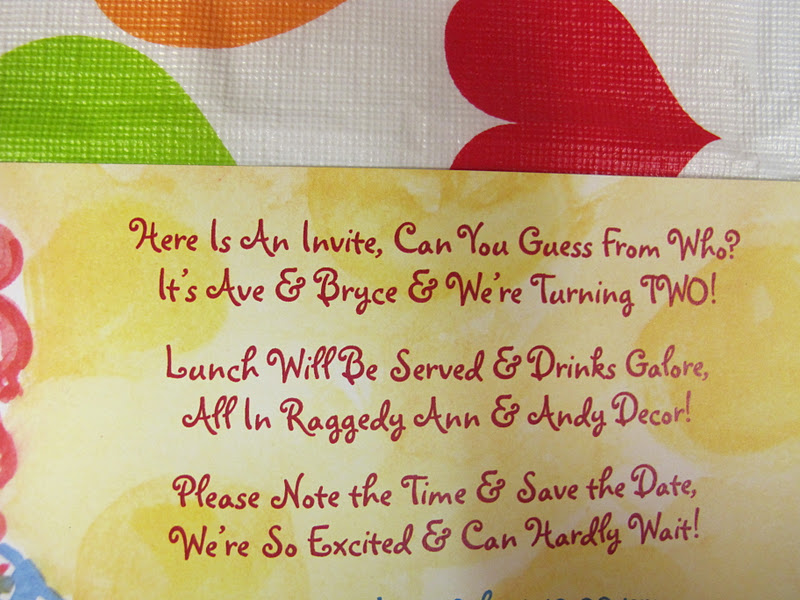 Here Is An Invite, Can You Guess From Who?
It's Ave & Bryce & We're Turning TWO!
Lunch Will Be Served & Drinks Galore,
All In Raggedy Ann & Andy Decor!
Please Note the Time & Save the Date,
We're So Excited & Can Hardly Wait!